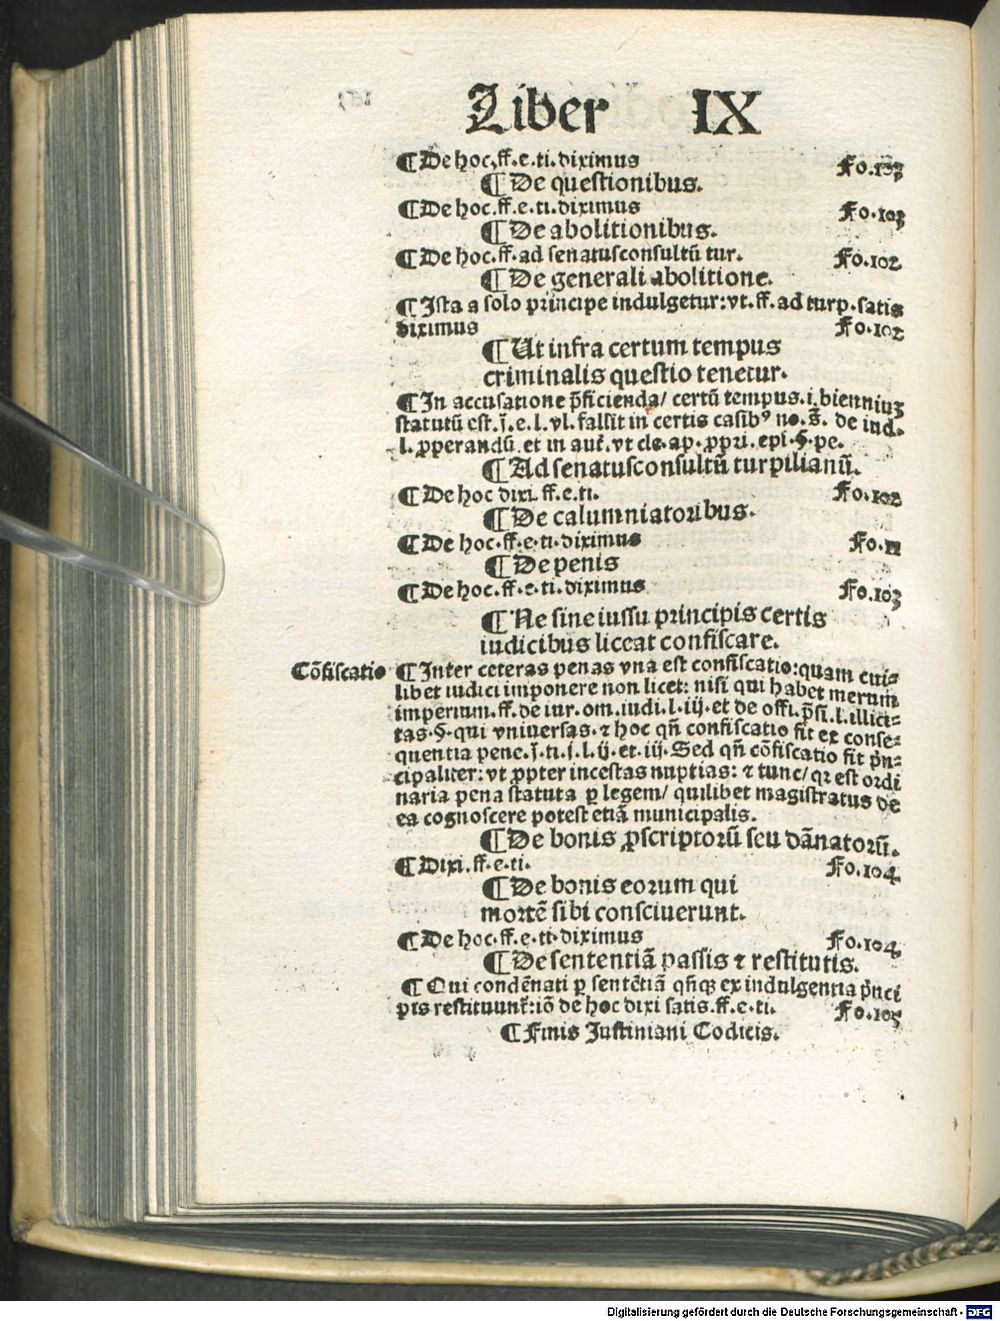 Liber IX
¶ De hoc.ff.e.ti.diximus
¶ De questionibus.
¶ De hoc.ff.e.ti.diximus Fo.103
¶ De abolitionibus.
¶ De hoc.ff.ad senatusconsultū tur. Fo.102
¶ De generali abolitione.
¶ Ista a solo principe indulgetur:vt.ff.ad turp.satis
diximus Fo.102
¶ Ut infra certum tempus
criminalis questio tenetur.
¶ In accusatione p̄ficienda/ certū tempus.i.bienniuȝ
statutū est.j̄.e.l.vl.fallit in certis casibꝰ no.s̄. de ind.
l.ꝓperandū.et in aut̄.vt cle.ap.ꝓpri.epi.§.pe.
¶ Ad senatusconsultū turpilianū.
¶ De hoc dixi.ff.e.ti. Fo.102
¶ De calumniatoribus.
¶ De hoc.ff.e.ti.diximus
¶ De penis
¶ De hoc.ff.e.ti.diximus Fo.103
¶ Ne sine iussu principis certis
iudicibus liceat confiscare.
Cōfiscatio ¶ Inter ceteras penas vna est confiscatio:quam cui-
libet iudici imponere non licet: nisi qui habet merum
imperium.ff.de iur.om.iudi.l.iij.et de offi.p̄si.l.illici-
tas.§.qui vniuersas.⁊ hoc qn̄ confiscatio fit ex conse-
quentia pene.j̄.ti.j.l.ij.et.iij.Sed qn̄ cōfiscatio fit p̄n-
cipaliter:vt ꝓpter incestas nuptias: ⁊ tunc/ qꝛ est ordi
naria pena statuta ꝑ legem/ quilibet magistratus de
ea cognoscere potest etiā municipalis.
¶ De bonis ꝓscriptorū seu dānatorū.
¶ Dixi.ff.e.ti. Fo.104
¶ De bonis eorum qui
mortē sibi consciuerunt.
¶ De hoc.ff.e.ti.diximus Fo.104
¶ De sententiā passis ⁊ restitutis.
¶ Qui condēnati ꝑ sentētiā qn̄qꝫ ex indulgentia p̄nci
pis restituunt̄:iō de hoc dixi satis.ff.e.ti. Fo.105
¶ Finis Justiniani Codicis.
Digitalisierung gefördert durch die Deutsche Forschungsgemeinschaft - DFG